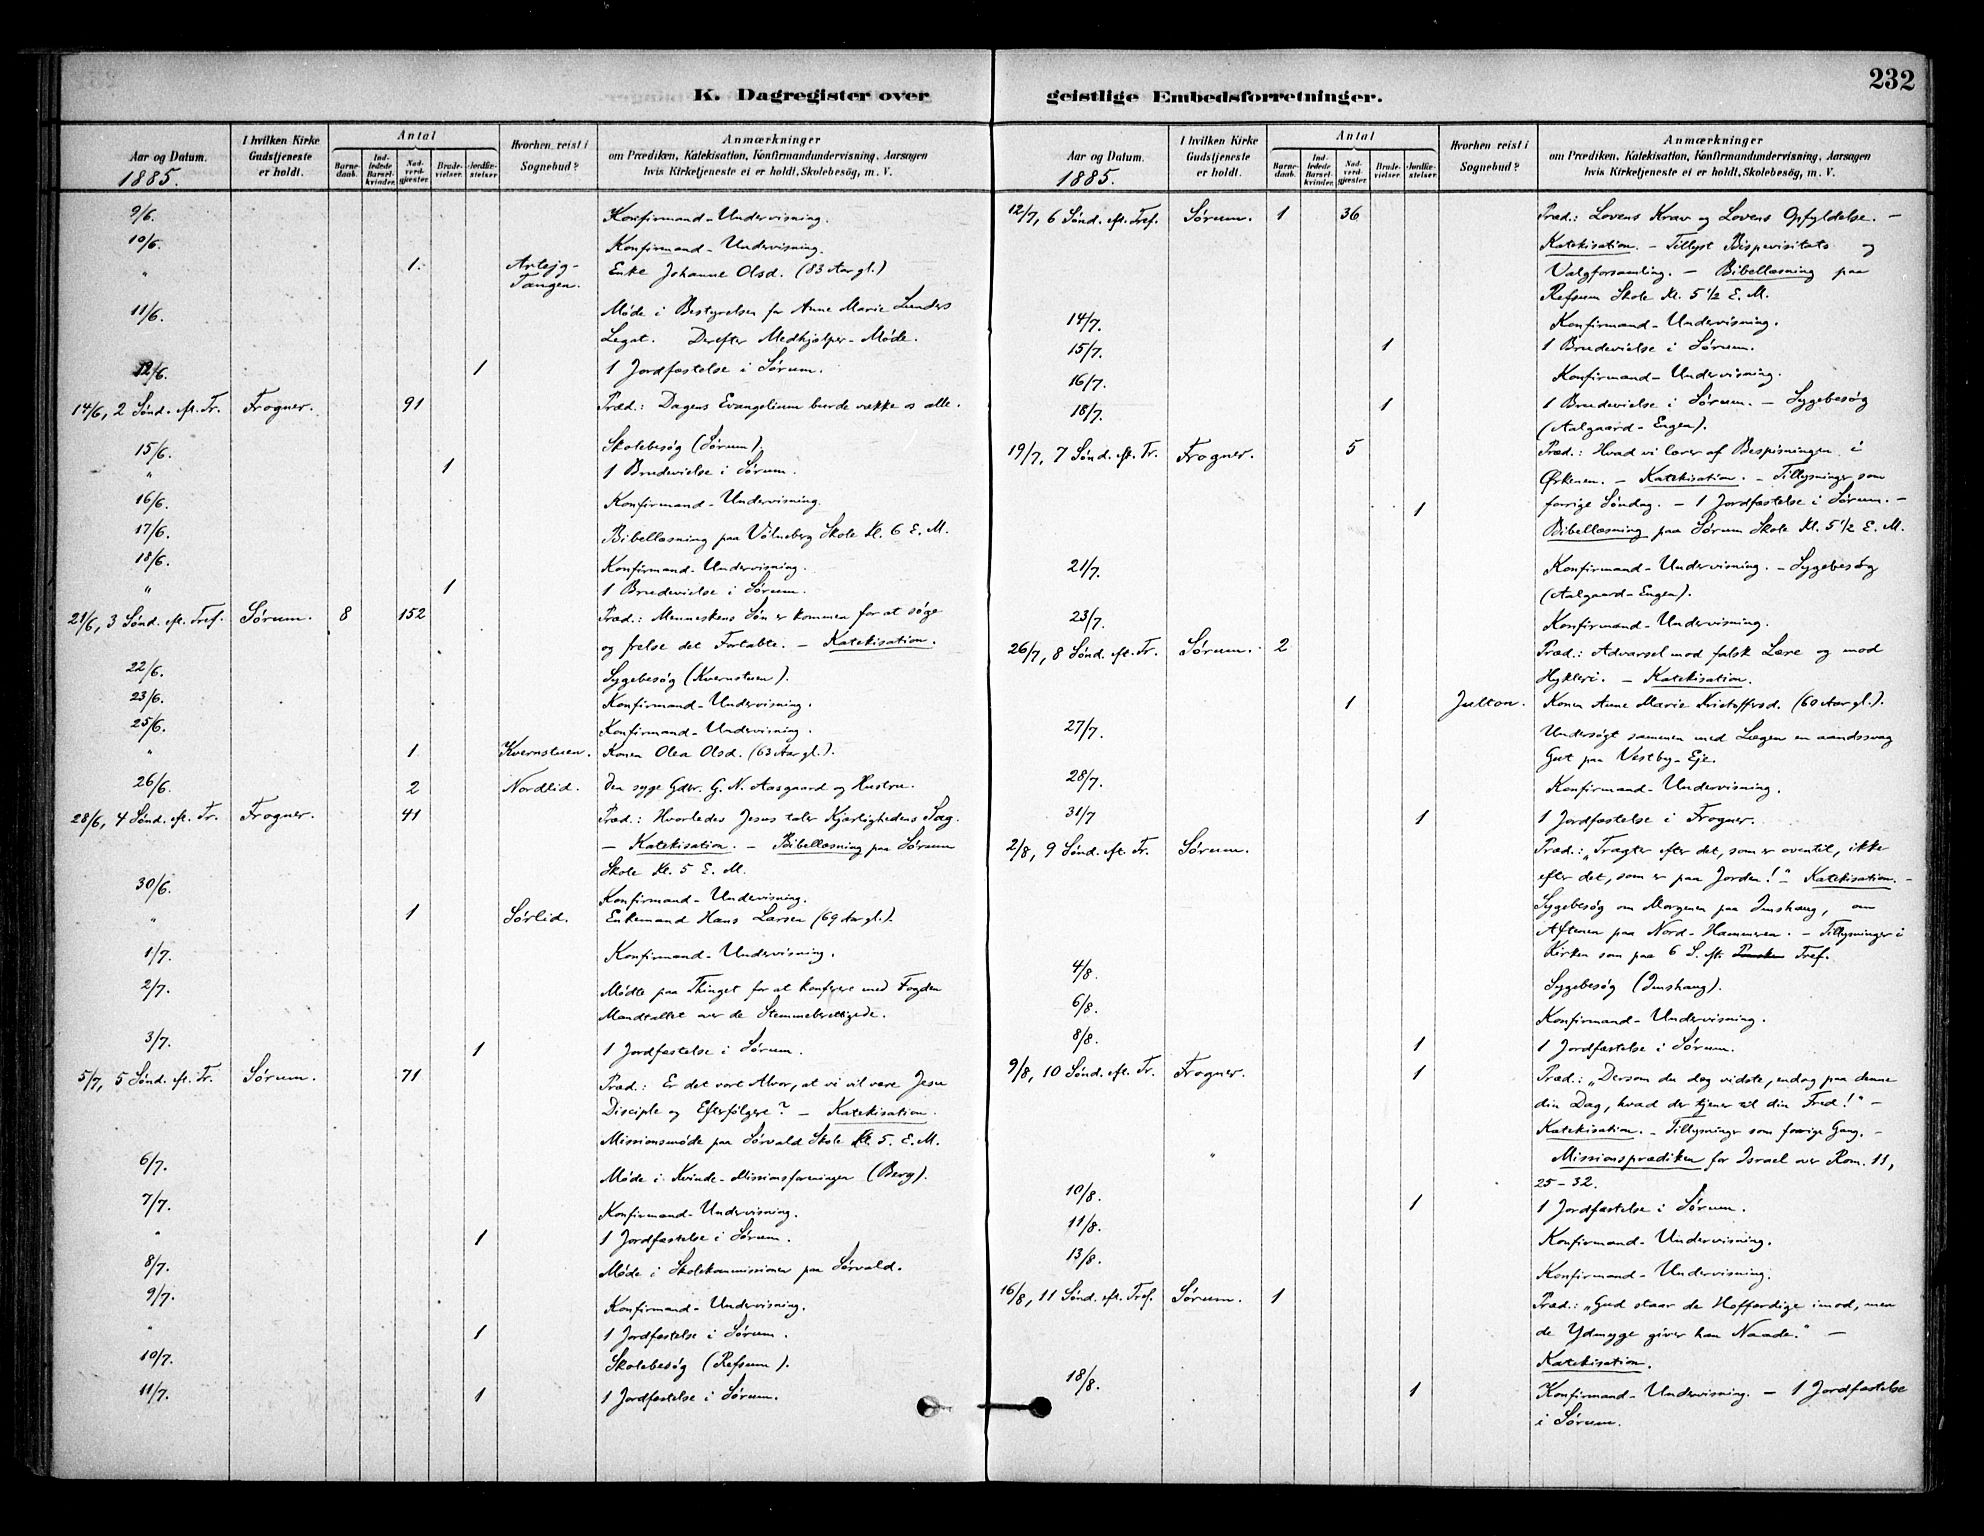 K. Dagregister over
Aar og Datum.
1885.
I hvilken Kirke
Gudstjeneste
er holdt.
Antal
Barne-
daab.
Ind-
ledede
Barsel-
kvinder.
Nad-
verd-
gjæster.
Brude-
vielser.
Jordfæ-
stelser
Hvorhen reist i
Sognebud?
Anmærkninger
om Prædiken, Katekisation, Konfirmandundervisning, Aarsagen
hvis Kirketjeneste ei er holdt, Skolebesøg, m. V.
9/6. Konfirmand-Undervisning.
10/6. Konfirmand-Undervisning.
" 1. Enke Johanne Olsd. (83 Aar gl.)
Tangen.
11/6. Møde i Bestyrelsen for Anne Marie Lunders
Legat. Derefter Medhjælper-Møde.
12/6. 1 1 Jordfæstelse i Sørum.
14/6, 2 Sønd. eft. Tr. Frogner. 91 Præd.: Dagens Evangelium burde vække os alle.
15/6. Skolebesøg (Sørum).
" 1 1 Brudevielse i Sørum.
16/6. Konfirmand-Undervisning.
17/6. Bibellæsning paa Vølneberg Skole Kl. 6 E. M.
18/6. Konfirmand-Undervisning.
" 1 1 Brudevielse i Sørum.
21/6, 3 Sønd. eft. Tref. Sørum. 8 152 Præd.: Menneskens Søn er kommen for at søge
og frelse det Fortabte. – Katekisation.
22/6. Sygebesøg (Kvernstuen).
23/6. Konfirmand-Undervisning.
25/6. Konfirmand-Undervisning.
" 1 Kvernstuen. Konen Olea Olsd. (63 Aar gl.).
26/6. 2 Nordlid. den syge Gdbr. G. N. Aasgaard og Hustru.
28/6, 4 Sønd. eft. Tr. Frogner. 41 Præd.: Hvorledes Jesus taler Kjærlighedens Sag.
– Katekisation. – Bibellæsning paa Sørum
Skole Kl. 5 E. M.
30/6. Konfirmand-Undervisning.
" 1 Sørlid. Enkemand Hans Larsen (69 Aar gl.).
1/7. Konfirmand-Undervisning.
2/7. Mødte paa Thinget for at konferere med Fogden
Mandtallet over de Stemmeberettigede.
3/7. 1 1 Jordfæstelse i Sørum.
5/7, 5 Sønd. eft. Tr. Sørum. 71 Præd.: Er det vort Alvor, at vi vil være Jesu
Disciple og Efterfølgere? – Katekisation.
Missionsmøde paa Sørvald Skole Kl. 5. E. M.
6/7. Møde i Kvinde-Missionsforeningen (Berg).
7/7. Konfirmand-Undervisning.
" 1 1 Jordfæstelse i Sørum.
8/7. Møde i Skolekommissionen paa Sørvald.
9/7. Konfirmand-Undervisning.
" 1 1 Jordfæstelse i Sørum.
10/7. Skolebesøg (Refsum).
11/7. 1 1 Jordfæstelse i Sørum.
geistlige Embedsforretninger.
232
Aar og Datum.
1885.
I hvilken Kirke
Gudstjeneste
er holdt.
Antal
Barne-
daab.
Ind-
ledede
Barsel-
kvinder.
Nad-
verd-
gjæster.
Brude-
vielser.
Jordfæ-
stelser
Hvorhen reist i
Sognebud?
Anmærkninger
om Prædiken, Katekisation, Konfirmandundervisning, Aarsagen
hvis Kirketjeneste ei er holdt, Skolebesøg, m. V.
12/7, 6 Sønd. eft. Tref. Sørum. 1 36 Præd.: Lovens Krav og Lovens Opfyldelse. –
Katekisation. – Tillyst Bispevisitats og
Valgforsamling. – Bibellæsning paa
Refsum Skole Kl. 5 1/2 E. M.
14/7. Konfirmand-Undervisning.
15/7. 1 1 Brudevielse i Sørum.
16/7. Konfirmand-Undervisning.
18/7. 1 1 Brudevielse i Sørum. – Sygebesøg
(Aalgaard-Engen).
19/7, 7 Sønd. eft. Tr. Frogner. 5 Præd.: Hvad vi lærer af Bespisningen i
Ørkenen. – Katekisation. – Tillysninger som
forrige Søndag. – 1 Jordfæstelse i Sørum. – 1
Bibellæsning paa Sørum Skole Kl. 5 1/2 E. M.
21/7. Konfirmand-Undervisning. – Sygebesøg
(Aalgaard-Engen).
23/7. Konfirmand-Undervisning.
26/7, 8 Sønd. eft. Tr. Sørum. 2 Præd.: Advarsel mod falsk Lære og mod
Hykleri. – Katekisation.
1 Julton. Konen Anne Marie Kristoffersd. (60 Aar gl.).
27/7. Undersøgt sammen med Lægen en aandssvag
Gut paa Vestby-Eje.
28/7. Konfirmand-Undervisning.
31/7 1 1 Jordfæstelse i Frogner.
2/8, 9 Sønd. eft. Tr. Sørum. Præd.: „Tragter efter det, som er oventil, ikke
efter det, som er paa Jorden!" Katekisation. –
Sygebesøg om Morgenen paa Imshaug, om
Aftenen paa Nord-Hammeren. – Tillysninger i
Kirken som paa 6 S. eft. Tref.
4/8. Sygebesøg (Imshaug).
6/8. Konfirmand-Undervisning.
8/8. 1 1 Jordfæstelse i Sørum.
9/8, 10 Sønd. eft. Tr. Frogner. 1 Præd.: „Dersom du dog vidste, endog paa denne
din Dag, hvad der tjener til din Fred!" –
Katekisation. – Tillysninger som forrige Gang. –
" Missionsprædiken for Israel over Rom. 11,
25-32.
10/8. 1 1 Jordfæstelse i Sørum.
11/8. Konfirmand-Undervisning.
13/8. Konfirmand-Undervisning.
16/8, 11 Sønd. eft. Tref. Sørum. 1 Præd.: „Gud staar de Hoffærdige imod, men
de Ydmyge giver han Naade." –
Katekisation.
18/8. 1 Konfirmand-Undervisning. – 1 Jordfæstelse
i Sørum.